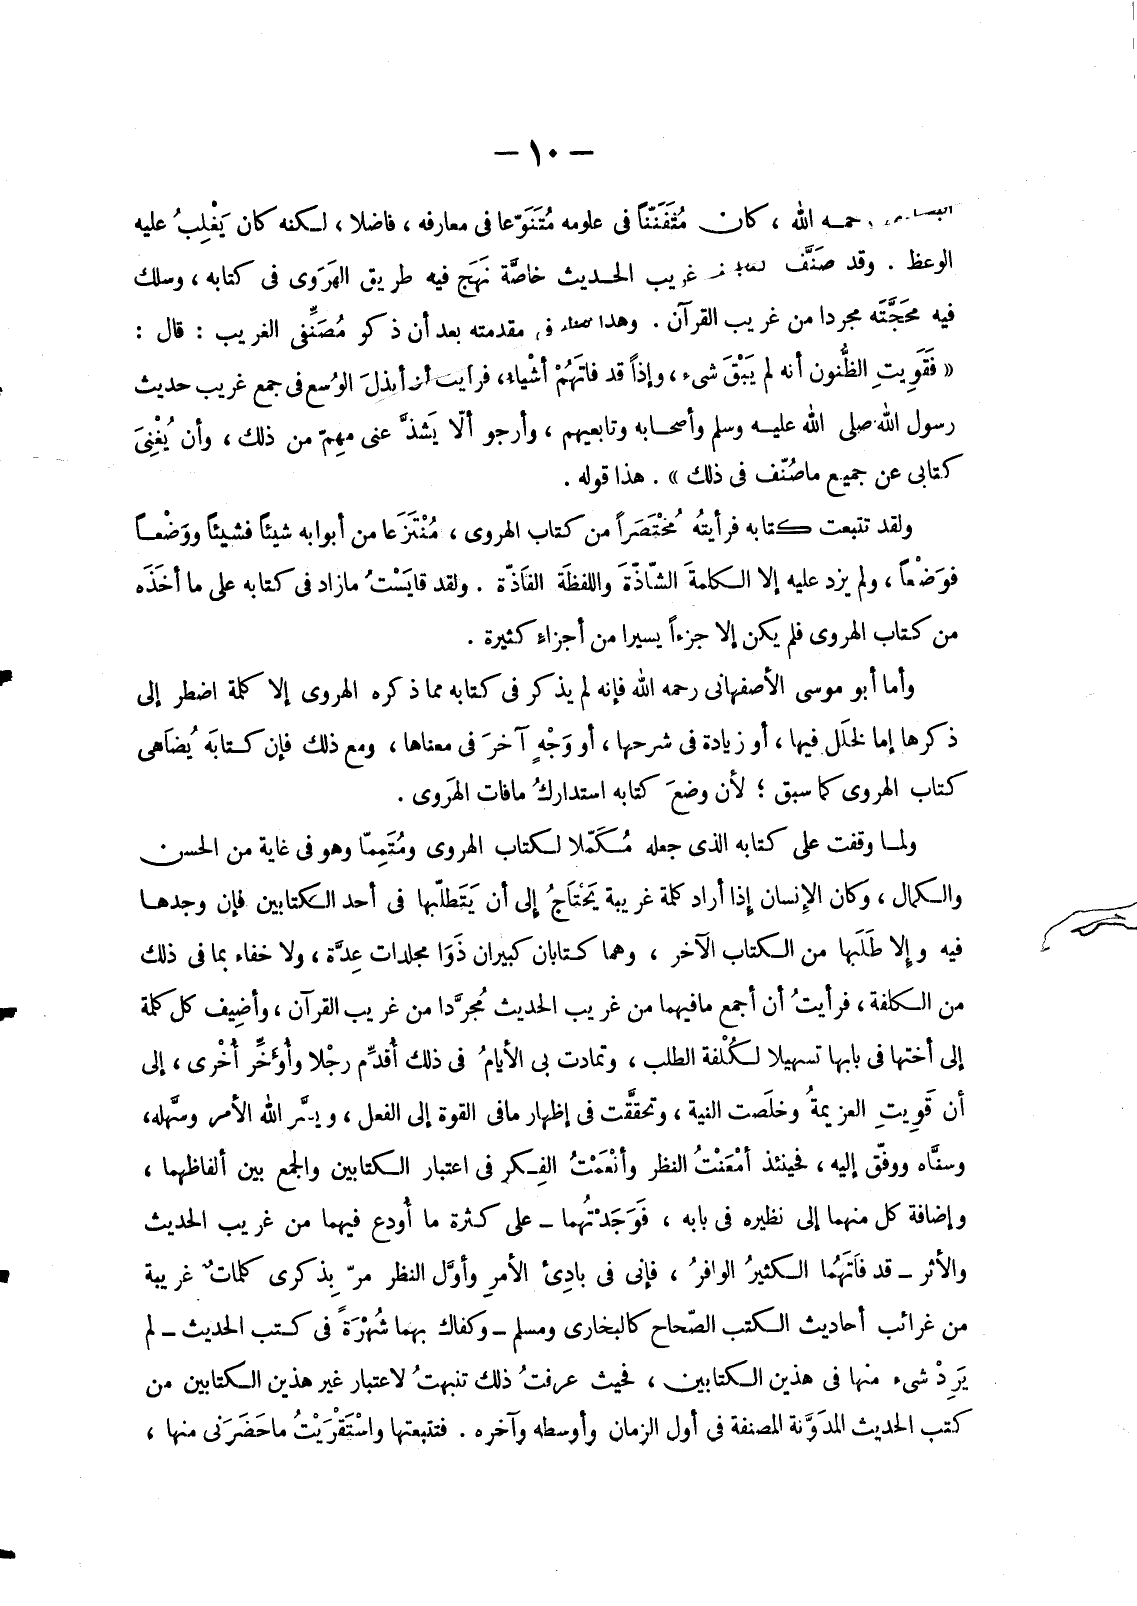 — ١٠ —
رحمه الله ، كان مُتَفَنّناً فى علومه مُتَنَوّعا فى معارفه ، فاضلا ، لكنه كان يَغْلِبُ عليه
الوعظ . وقد صَنَّف غريب الحديث خاصَّة نَهَج فيه طريق الهَرَوى فى كتابه ، وسلك
فيه محَجَّتَه مجردا من غريب القرآن . وهذا فى مقدمته بعد أن ذكر مُصَنِّفى الغريب : قال :
« فَقَوِيتِ الظُّنون أنه لم يَبْقَ شىء ، وإذاً قد فاتَهُمْ أشْياء، فرأيت أن أبذلَ الوُسع فى جمع غريب حديث
رسول الله صلى الله عليه وسلم وأصحابه وتابعيهم ، وأرجو ألّا يَشذَّ عنى مهِمّ من ذلك ، وأن يُغْنِىَ
كتابى عن جميع ماصُنّف فى ذلك » . هذا قوله .
ولقد تتبعت كتابه فرأيتُه مُخْتَصَراً من كتاب الهروى ، مُنْتَزَعا من أبوابه شيئاً فشيئاً ووَضْعاً
فوَضْعاً ، ولم يزد عليه إلا الكلمةَ الشّاذّةَ واللفظَة الفاَذّة . ولقد قايَسْتُ مازاد فى كتابه على ما أخَذَه
من كتاب الهروى فلم يكن إلا جزءاً يسيرا من أجزاءٍ كثيرة .
وأما أبو موسى الأصفهانى رحمه الله فإنه لم يذكر فى كتابه مما ذكره الهروى إلا كلمة اضطر إلى
ذكرها إما لخَلَل فيها ، أو زيادة فى شرحها ، أو وَجْهٍ آخرَ فى معناها ، ومع ذلك فإن كتابَه يُضاَهى
كتاب الهروى كما سبق ؛ لأن وضعَ كتابه استدراكُ مافات الهَروى .
ولما وقفت على كتابه الذى جعله مُكَمّلا لكتاب الهروى ومُتَمِمّا وهو فى غاية من الحسن
والكمال ، وكان الإنسان إذا أراد كلمة غريبة يَحْتاَجُ إلى أن يَتَطلّبها فى أحد الكتابين فإن وجدها
فيه وإلا طَلَبها من الكتاب الآخر ، وهما كتابان كبيران ذَوَا مجلدات عِدَّة ، ولا خفاء بما فى ذلك
من الكلفة ، فرأيتُ أن أجمع مافيهما من غريب الحديث مُجرَّدا من غريب القرآن ، وأضِيف كل كلمة
إلى أختها فى بابها تسهيلا لكُلْفة الطلب ، وتمادت بى الأيامُ فى ذلك أُقدِّم رجْلا وأُوَخِّر أُخْرى ، إلى
أن قَوِيتِ العزيمةُ وخلَصت النية ، وتحققَّت فى إظهار مافى القوة إلى الفعل ، ويسَّر الله الأمر وسهَّله،
وسنَّاه ووفّق إليه ، فحينئذ أمْعَنْتُ النظر وأنْعَمْتُ الفِكر فى اعتبار الكتابين والجمع بين ألفاظهما ،
وإضافة كل منهما إلى نظيره فى بابه ، فَوَجَدْتُهما – على كثرة ما أُودع فيهما من غريب الحديث
والأثر – قد فاَتَهُما الكثيرُ الوافرُ ، فإنى فى بادئ الأمرِ وأوَّل النظر مرّ بِذكرى كلماتٌ غريبة
من غرائب أحاديث الكتب الصّحاح كالبخارى ومسلم – وكفاك بهما شُهْرَةً فى كتب الحديث – لم
يَرِدْ شىء منها فى هذين الكتابين ، فحيث عرفتُ ذلك تنبهتُ لاعتبار غير هذين الكتابين من
كتب الحديث المدوَّنة المصنفة فى أول الزمان وأوسطه وآخره . فتتبعتها واسْتَقْرَيْتُ ماحَضَرَنى منها ،